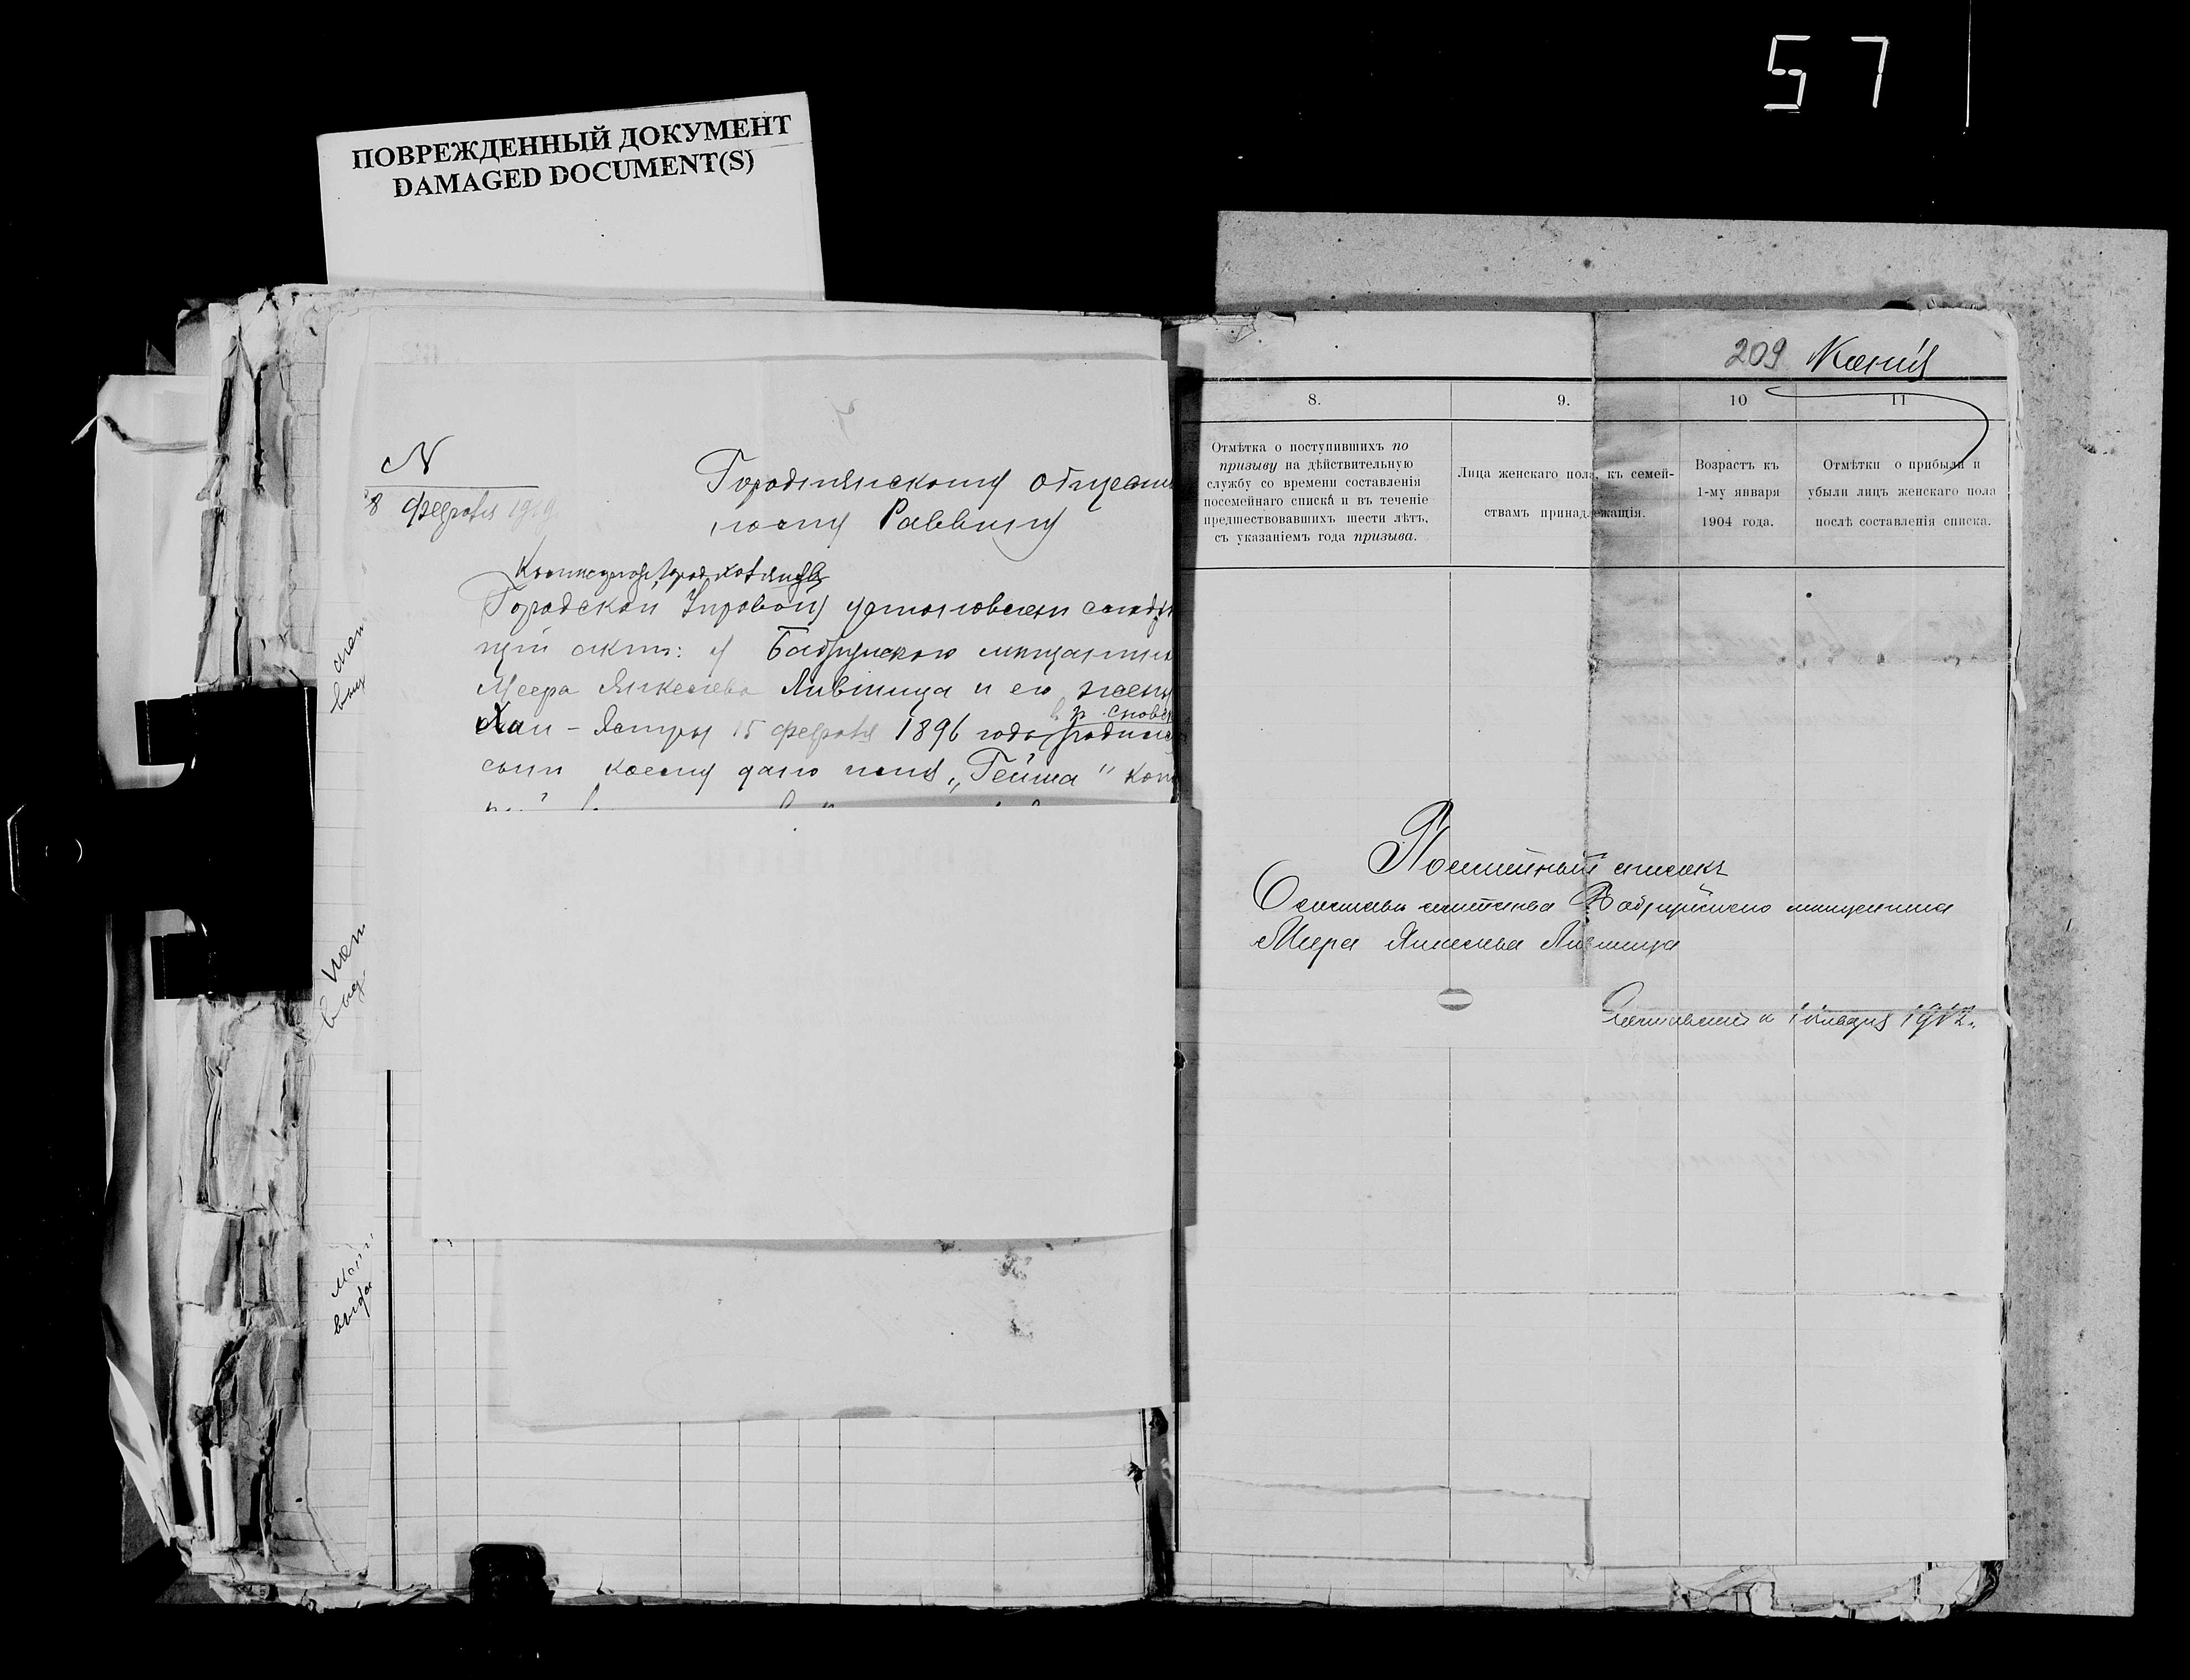 57
ПОВРЕЖДЕННЫЙ ДОКУМЕНТ
DAMAGED DOCUMENT(S)
N
8 февраля 1919
Городнянскому общест
ному Раввину
Городской Управой установлен следу
щий акт: у Бобруйского мещанина
Меера Янкелева Лившица и его жены
в г. Сновс
Хаи - Эстры 15 февраля 1896 года родился
сын коему дано имя „Гейша" кот
209 Копія
8.
9.
10
11
Отмѣтка о поступившихъ по
призыву на дѣйствительную
службу со времени составленія
посемейнаго списка и въ теченіе
предшествовавшихъ шести лѣтъ,
съ указаніемъ года призыва.
Лица женскаго пола, къ семей-
ствамъ принадлежащія.
Возрастъ къ
1-му января
1904 года.
Отмѣтки о прибыли и
убыли лицъ женскаго пола
послѣ составленія списка.
Посемейный списокъ
О составѣ семейства Бобруйскаго мещанина
Меера Янкелева Лившица
Составленъ къ 1 января 1912 г.